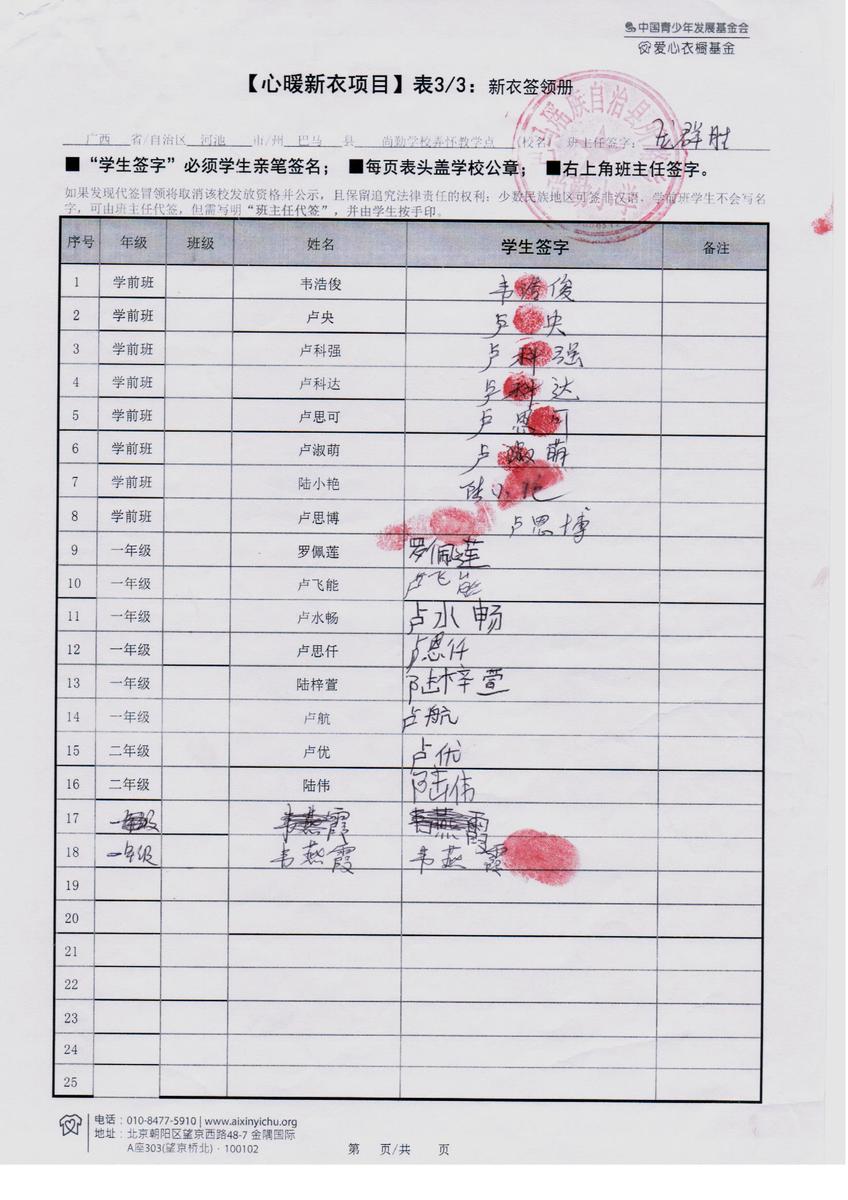 中国青少年发展基金会
爱心衣橱基金
【心暖新衣项目】表3/3：新衣签领册
广西 省/自治区 河池 市/州 巴马 县 尚勤学校弄怀教学点 (校名) 班主任签字： 群胜
■“学生签字”必须学生亲笔签名； ■每页表头盖学校公章； ■右上角班主任签字。
如果发现代签冒领将取消该校发放资格并公示，且保留追究法律责任的权利；少数民族地区可签非汉语，学前班学生不会写名
字，可由班主任代签，但需写明“班主任代签”，并由学生按手印。
瑶族自治县
序号 年级 班级 姓名 学生签字 备注
1 学前班 韦浩俊 韦浩俊
2 学前班 卢央 卢央
3 学前班 卢科强 卢科强
4 学前班 卢科达 卢科达
5 学前班 卢思可 卢思可
6 学前班 卢淑萌 卢淑萌
7 学前班 陆小艳 陆小艳
8 学前班 卢思博 卢思博
9 一年级 罗佩莲 罗佩莲
10 一年级 卢飞能 卢飞能
11 一年级 卢水畅 卢水畅
12 一年级 卢思仟 卢思仟
13 一年级 陆梓萱 陆梓萱
14 一年级 卢航 卢航
15 二年级 卢优 卢优
16 二年级 陆伟 陆伟
17 一年级 韦燕霞 韦燕霞
18 一年级 韦燕霞 韦燕霞
19
20
21
22
23
24
25
电话：010-8477-5910 | www.aixinyichu.org
地址：北京朝阳区望京西路48-7 金隅国际
A座303(望京桥北)·100102
第 页/共 页